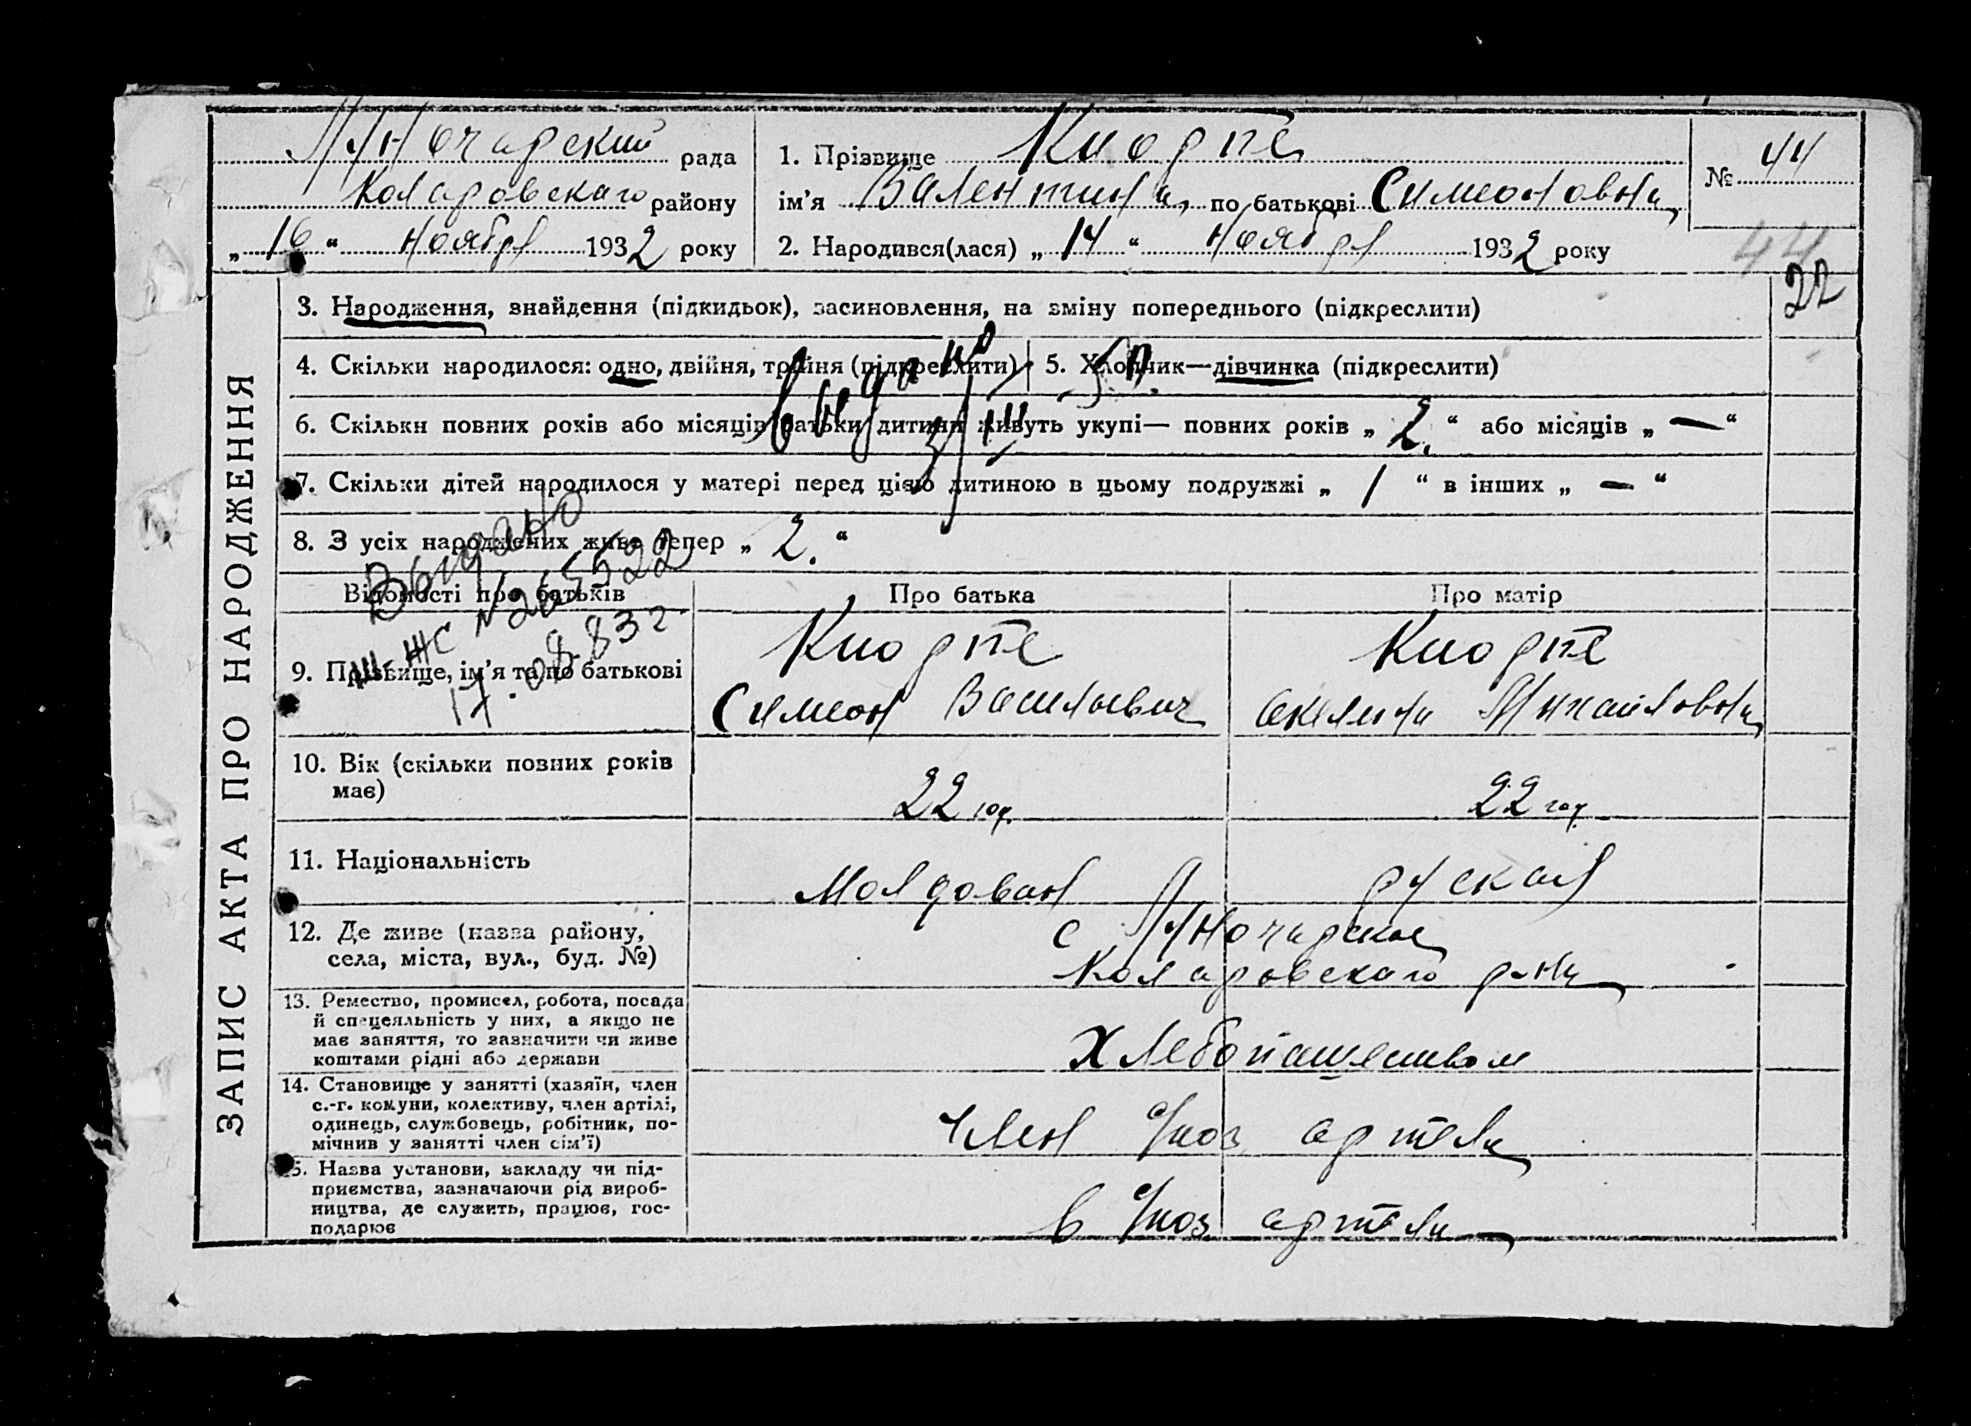 Луночарский рада
Коларовскаго району
„ 16 “ ноября 1932 року
1. Прізвище Киорпе
ім'я Валентина по батькові Симеоновна
2. Народився(лася) „ 14 “ Ноября 1932 року
№ 44
44
22
ЗАПИС АКТА ПРО НАРОДЖЕННЯ
3. Народження, знайдення (підкидьок), засиновлення, на зміну попереднього (підкреслити)
4. Скільки народилося: одно, двійня, тройня (підкреслити)
5. Хлопчик—дівчинка (підкреслити)
6. Скільки повних років або місяців батьки дитини живуть укупі— повних років „ 2. “ або місяців „ — “
7. Скільки дітей народилося у матері перед цією дитиною в цьому подружжі „ 1 “ в інших „ — “
8. З усіх народжених живе тепер „ 2. “
выдано
Выдано
№ 265522
17.08.83г
Відомості про батьків
Про батька
Про матір
9. Прізвище, ім'я та по батькові
Киорпе
Симеон Васильевич
Киорпе
Акелина Михайловна
10. Вік (скільки повних років
має)
22 год.
22 год.
11. Національність
Молдован
руская
12. Де живе (назва району,
села, міста, вул., буд. №)
с Луночарское
Коларовскаго р-на
13. Ремество, промисел, робота, посада
й спецеяльність у них, а якщо не
має заняття, то зазначити чи живе
коштами рідні або держави
Хлебопашеством
14. Становище у занятті (хазяїн, член
с.-г. комуни, колективу, член артілі,
одинець, службовець, робітник, по-
мічнив у занятті член сім'ї)
член с/хоз артели
15. Назва установи, закладу чи під-
приємства, зазначаючи рід вироб-
ництва, де служить, працює, гос-
подарює
в с/хоз артели